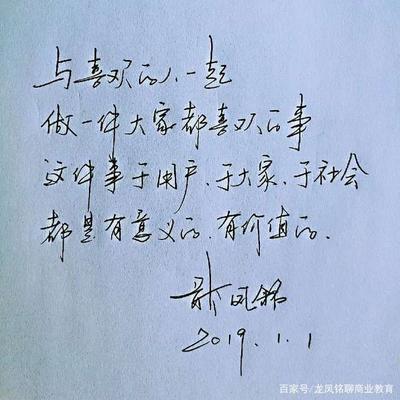 与喜欢的人一起
做一件大家都喜欢的事
这件事于用户、于大家、于社会
都是有意义的、有价值的.
2019.1.1
百家号/龙凤铭聊商业教育